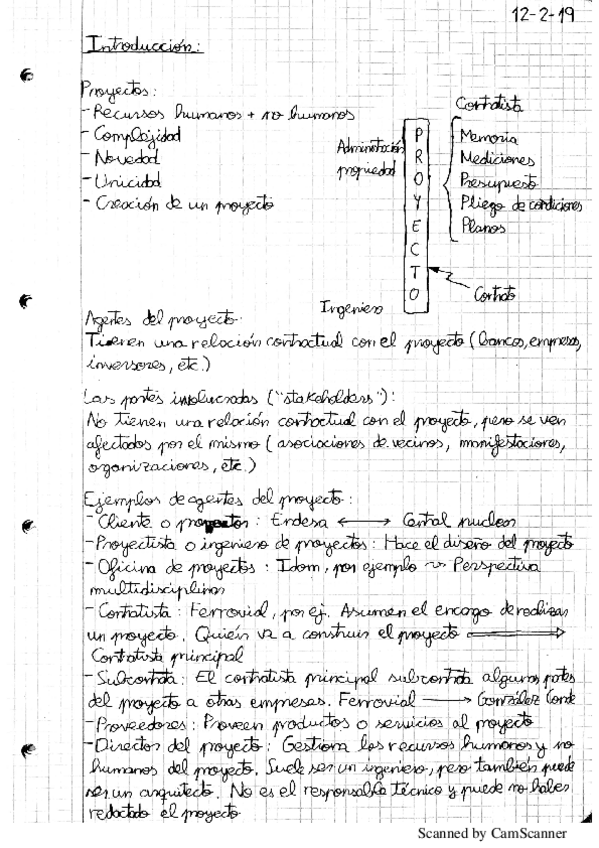 12-2-19
Introducción:
Proyectos:
- Recursos humanos + no humanos
- Complejidad
- Novedad
- Unicidad
- Creación de un proyecto
Administración
propiedad
Ingeniero
PROYECTO
Contratista
Memoria
Mediciones
Presupuesto
Pliego de condiciones
Planos
Contrato
Agentes del proyecto:
Tienen una relación contractual con el proyecto (bancos, empresas,
inversores, etc.)
Las partes involucradas ("stakeholders"):
No tienen una relación contractual con el proyecto, pero se ven
afectados por el mismo (asociaciones de vecinos, manifestaciones,
organizaciones, etc.)
Ejemplos de agentes del proyecto:
- Cliente o promotor: Endesa ⟷ Central nuclear
- Proyectista o ingeniero de proyectos: Hace el diseño del proyecto
- Oficina de proyectos: Idom, por ejemplo ~ Perspectiva
multidisciplinar
- Contratista: Ferrovial, por ej. Asumen el encargo de realizar
un proyecto. Quién va a construir el proyecto ⟹
Contratista principal
- Subcontrata: El contratista principal subcontrata algunas partes
del proyecto a otras empresas. Ferrovial ⟶ González Conde
- Proveedores: Proveen productos o servicios al proyecto
- Director del proyecto: Gestiona los recursos humanos y no
humanos del proyecto. Suele ser un ingeniero, pero también puede
ser un arquitecto. No es el responsable técnico y puede no haber
redactado el proyecto
Scanned by CamScanner